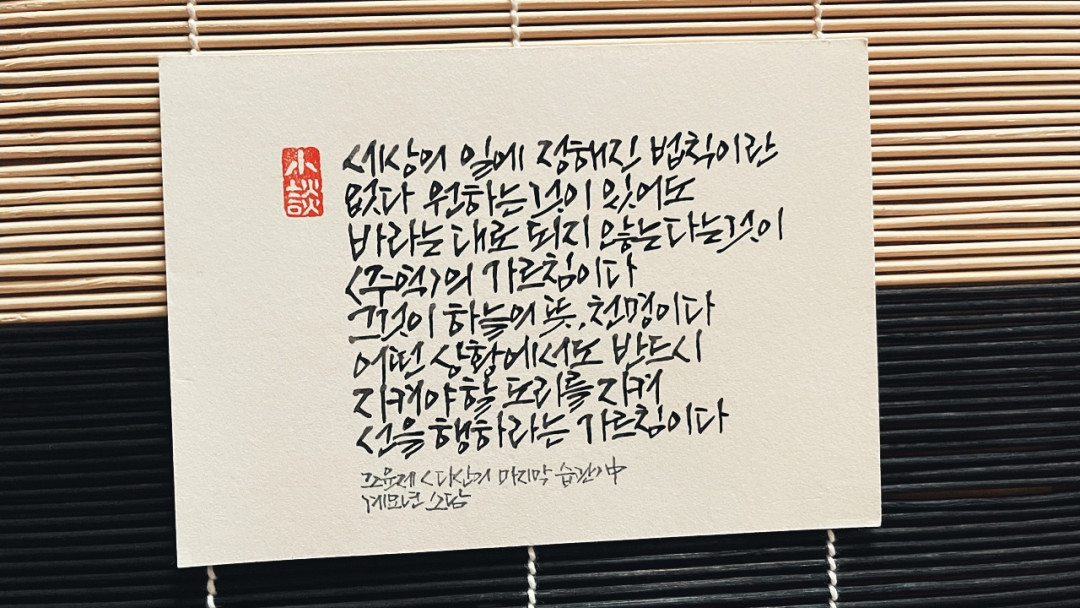 小談
세상의 일에 정해진 법칙이란
없다 원하는 것이 있어도
바라는 대로 되지 않는다는 것이
<주역>의 가르침이다
그것이 하늘의 뜻, 천명이다
어떤 상황에서도 반드시
지켜야 할 도리를 지켜
선을 행하라는 가르침이다
조윤제 <다산의 마지막 습관>中
계묘년 소담